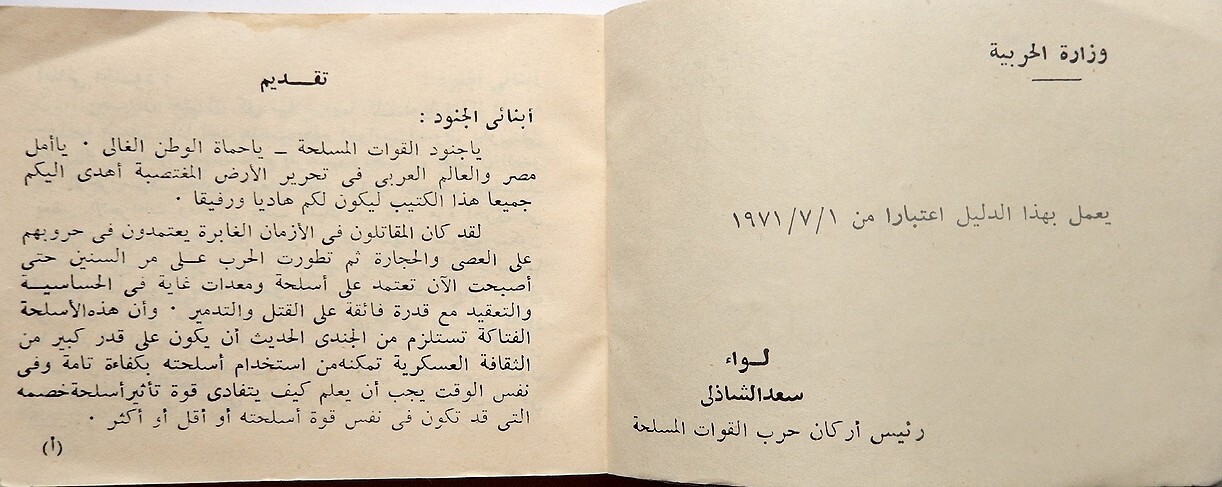 وزارة الحربية
يعمل بهذا الدليل اعتبارا من ١/٧/١٩٧١
لـواء
سعد الشاذلى
رئيس أركان حرب القوات المسلحة
تقـديم
أبنائى الجنود :
ياجنود القوات المسلحة – ياحماة الوطن الغالى ٠ ياأمل
مصر والعالم العربى فى تحرير الأرض المغتصبة أهدى اليكم
جميعا هذا الكتيب ليكون لكم هاديا ورفيقا ٠
لقد كان المقاتلون فى الأزمان الغابرة يعتمدون فى حروبهم
على العصى والحجارة ثم تطورت الحرب علـى مر السنين حتى
أصبحت الآن تعتمد على أسلحة ومعدات غاية فى الحساسيـة
والتعقيد مع قدرة فائقة على القتل والتدمير ٠ وأن هذه الأسلحة
الفتاكة تستلزم من الجندى الحديث أن يكون على قدر كبير من
الثقافة العسكرية تمكنه من استخدام أسلحته بكفاءة تامة وفى
نفس الوقت يجب أن يعلم كيف يتفادى قوة تأثير أسلحة خصمه
التى قد تكون فى نفس قوة أسلحته أو أقل أو أكثر ٠
(أ)